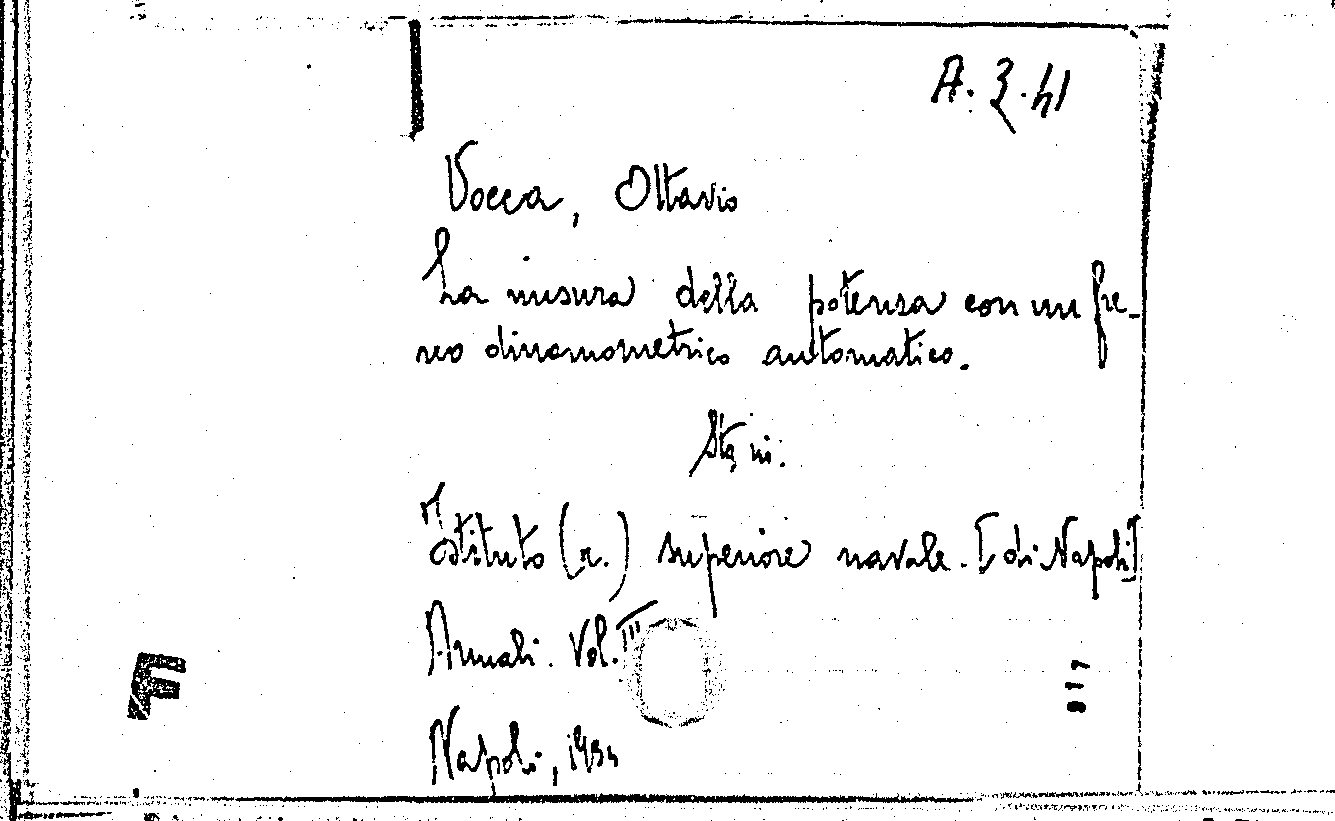 A. Z. 41
Vocca, Ottavio
La misura della potenza con un fre-
no dinamometrico automatico.
Sta in:
Istituto (r.) superiore navale. [di Napoli]
Annali. Vol. III
F
817
Napoli, 1934